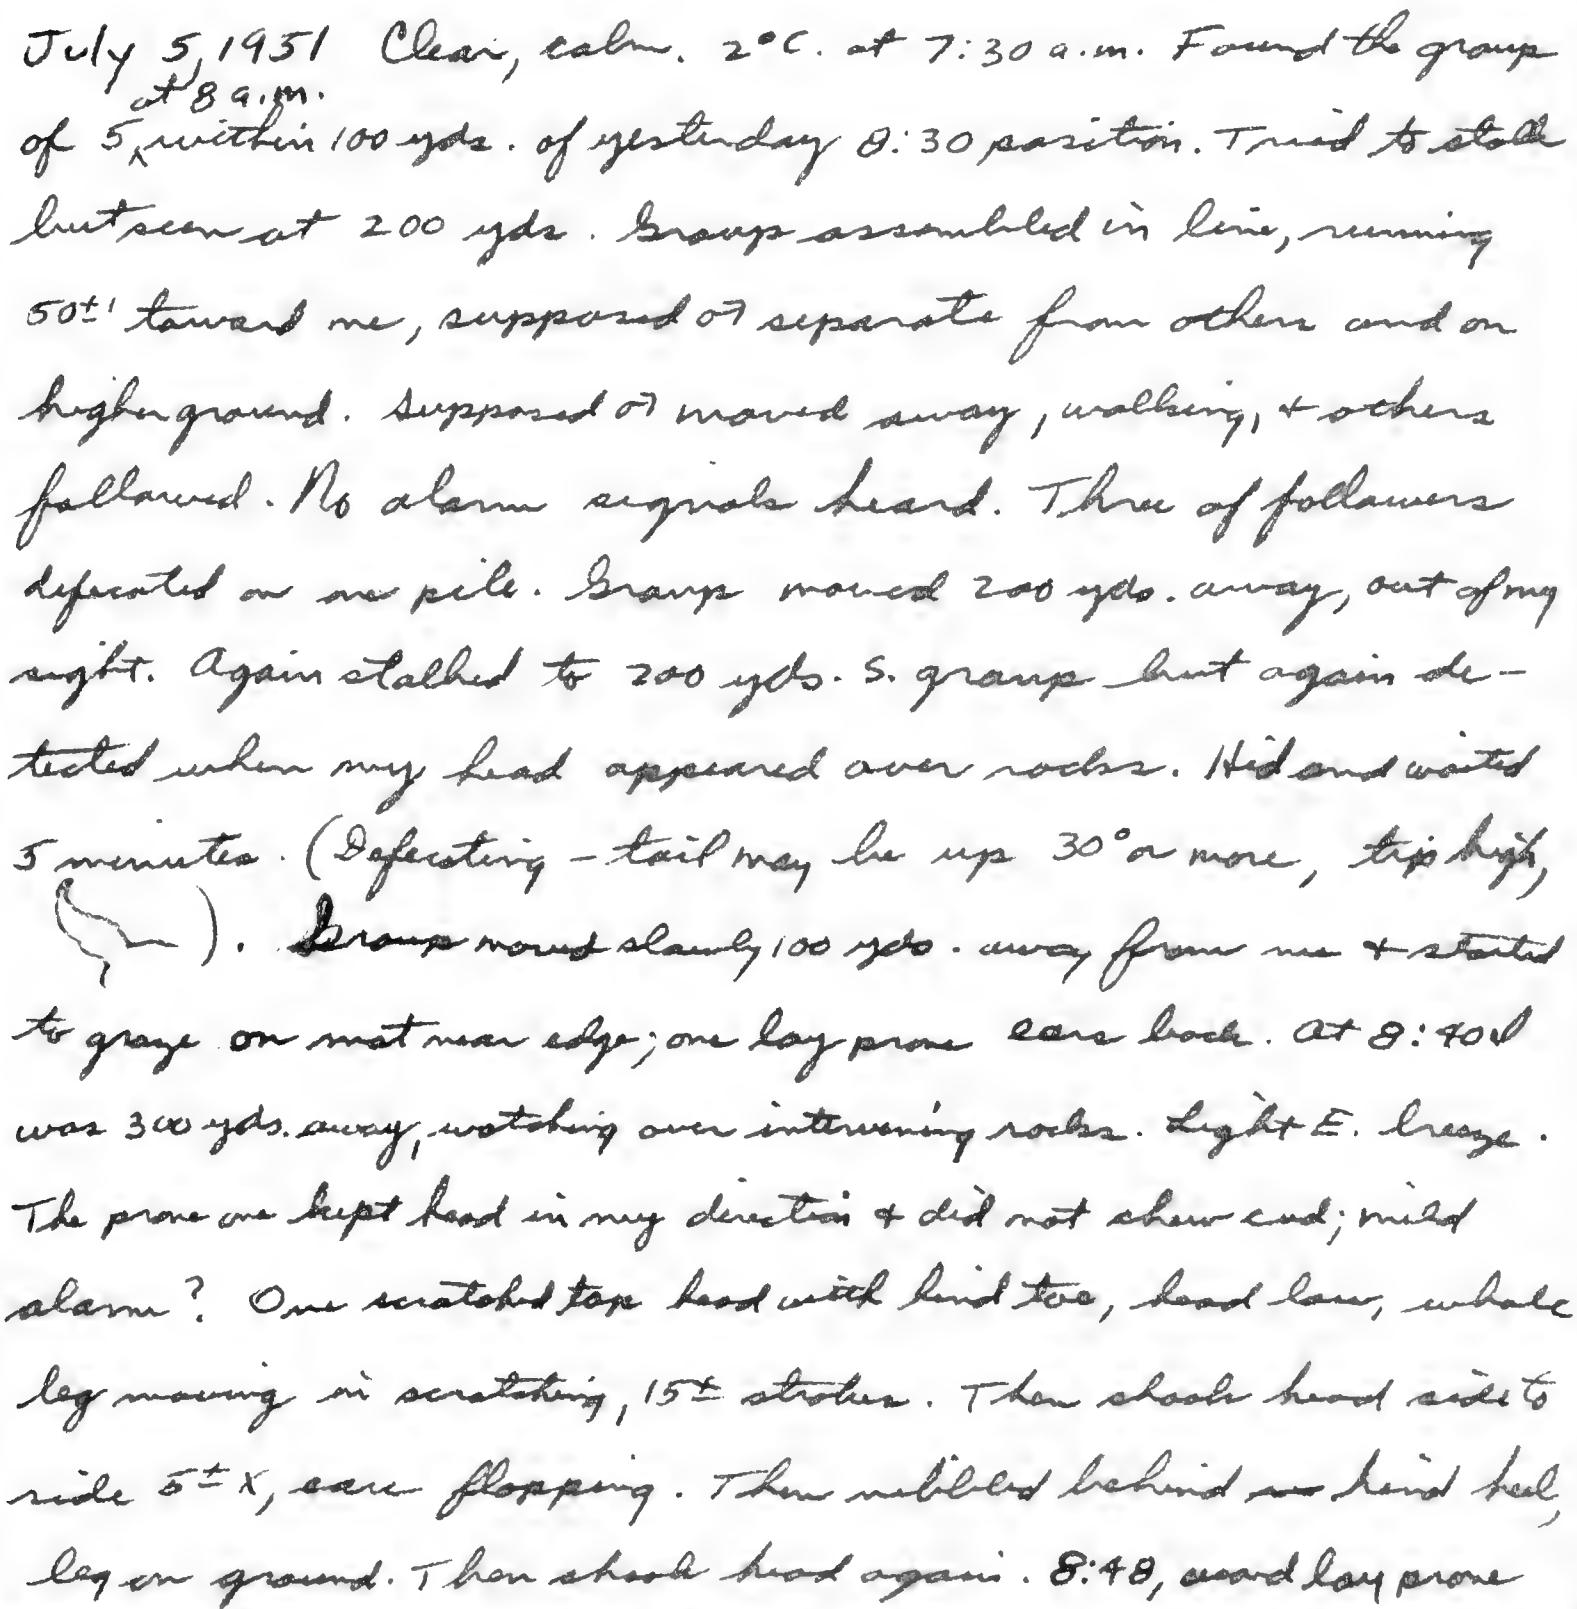 July 5, 1951 Clear, calm. 2°C. at 7:30 a.m. Found the group
at 8 a.m.
of 5 ^ within 100 yds. of yesterday 8:30 position. Tried to stalk
but seen at 200 yds. Group assembled in line, running
50±' toward me, supposed ♂ separate from others and on
higher ground. Supposed ♂ moved away, walking, + others
followed. No alarm signals heard. Three of followers
defecated on one pile. Group moved 200 yds. away, out of my
sight. Again stalked to 200 yds. S. group but again de-
tected when my head appeared over rocks. Hid and waited
5 minutes. (Defecating - tail may be up 30° or more, tip high,
). Group moved slowly 100 yds. away from me + started
to graze on mat near edge; one lay prone ears back. At 8:40 I
was 300 yds. away, watching over intervening rocks. Light E. breeze.
The prone one kept head in my direction + did not chew cud; mild
alarm? One scratched top head with hind toe, head low, whole
leg moving in scratching, 15± strokes. Then shook head side to
side 5± X, ears flopping. Then nibbled behind hind heel,
leg on ground. Then shook head again. 8:48, lay prone